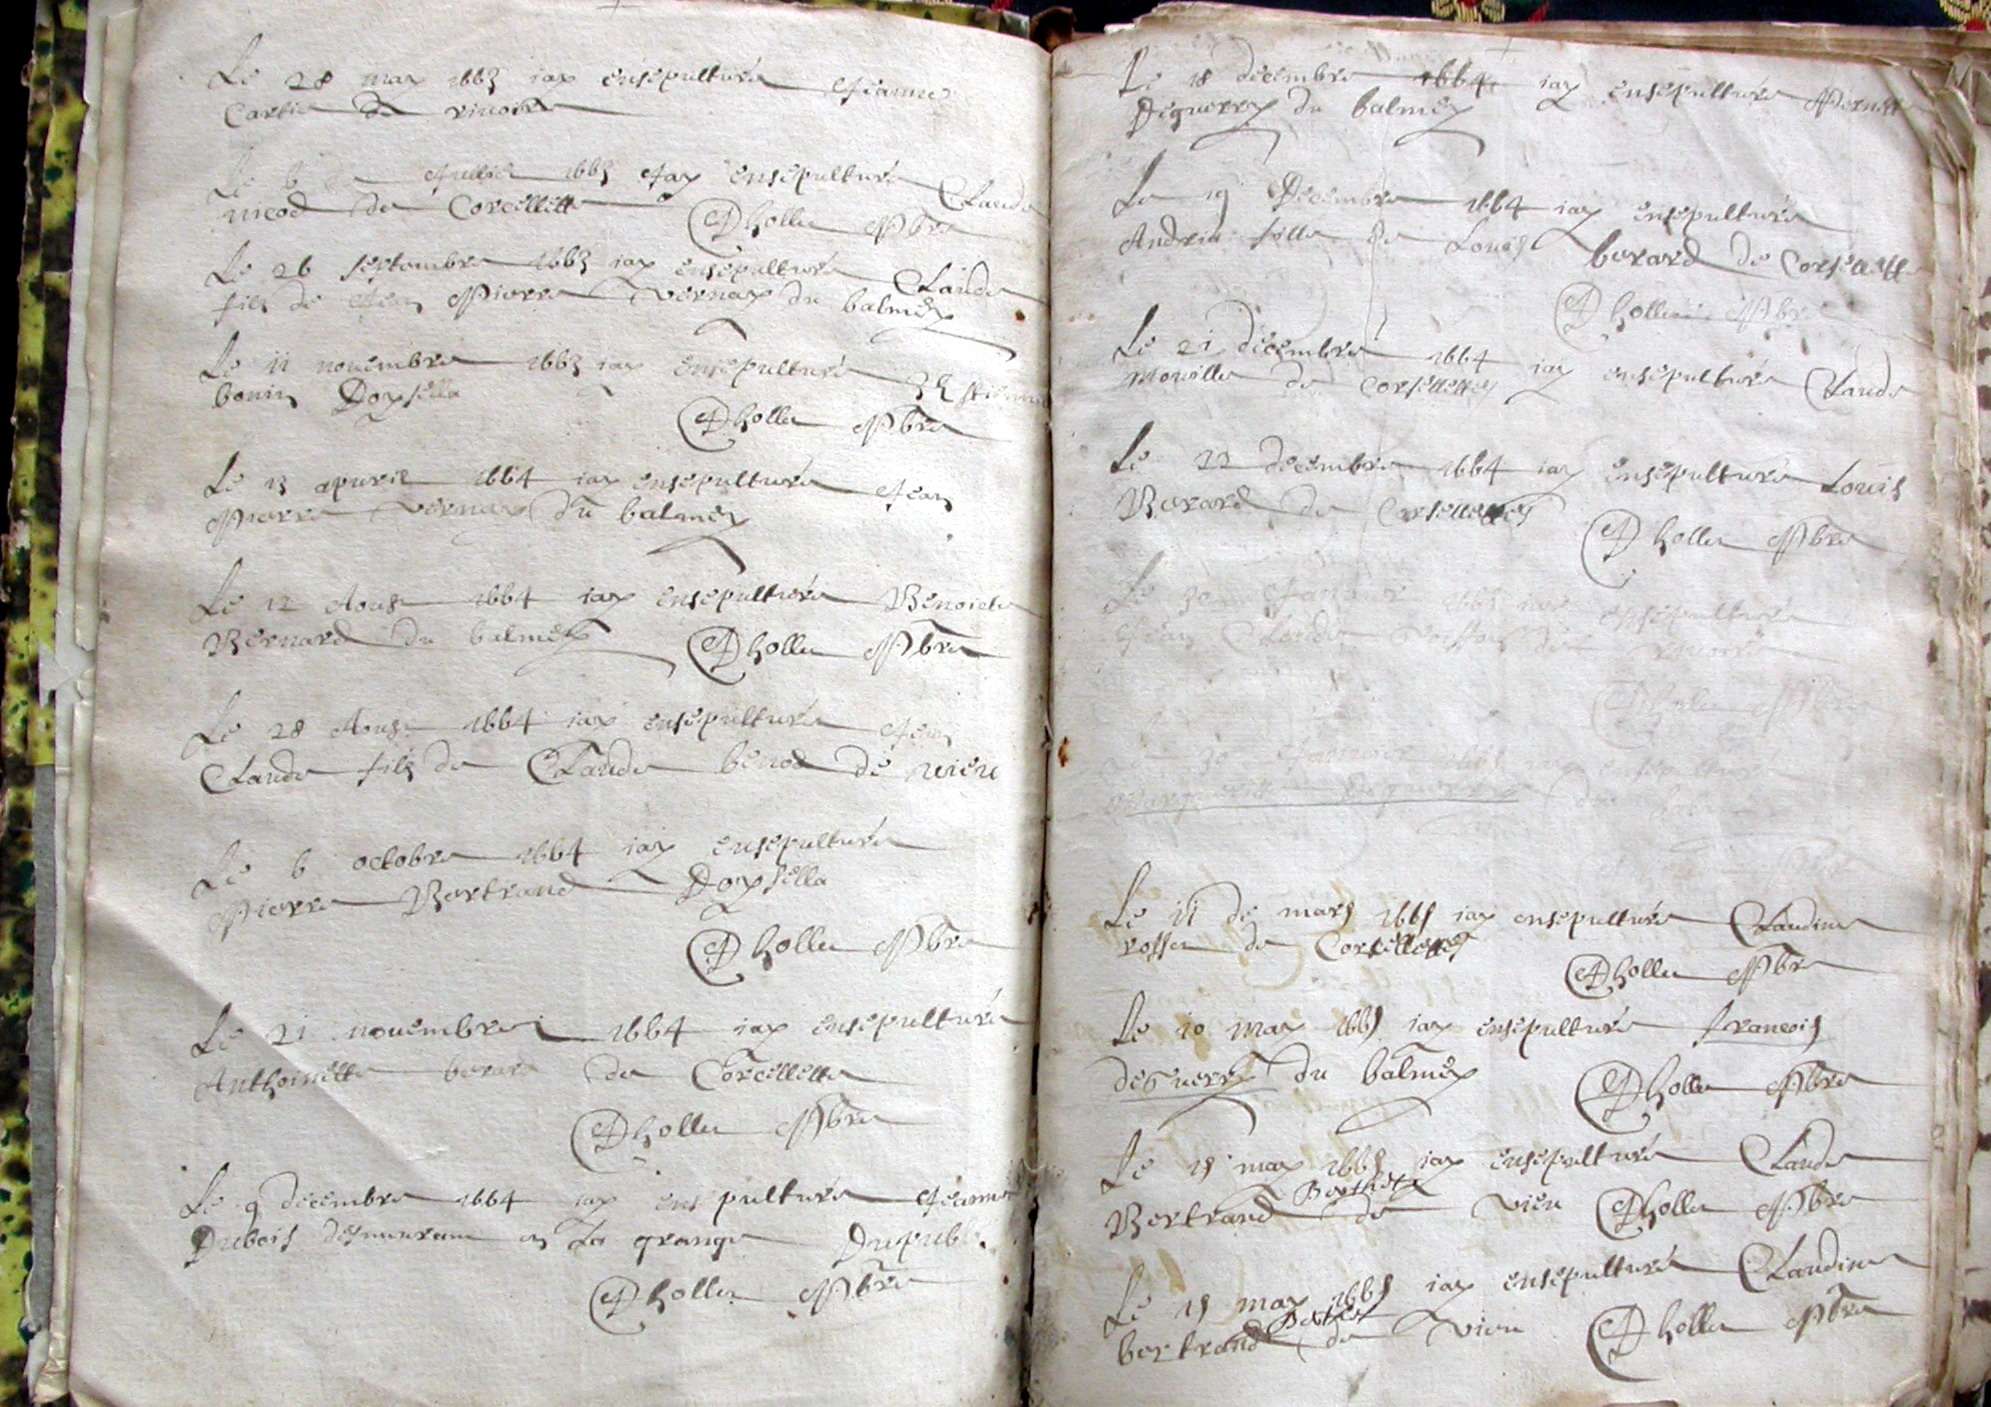 Le 28 may 1663 iay ensepulturé Jeanne
Cartie de rivoire
Le 6 Jullie 1663 Jay ensepulturé Claude
nicod de Corcellette D hollie Pbre
Le 26 septembre 1663 iay ensepulturé Claude
fils de Jean Pierre vernay du balmey
Le 11 novembre 1663 iay ensepulturé
bonin Doysella
D hollie Pbre
Le 13 apuril 1664 iay ensepulturé Jean
Pierre vernay du balmey
Le 12 Aoust 1664 iay ensepulturé Benoiete
Bernard du balmey D hollie Pbre
Le 28 Aoust 1664 iay ensepulturé Jean
Claude fils de Claude benod de vieu
Le 6 octobre 1664 iay ensepulturé
Pierre Bertrand Doysella
D hollie Pbre
Le 21 novembre 1664 iay ensepulturé
Anthoinette berard de Corcellette
D hollie Pbre
Le 9 decembre 1664 iay ensepulturé Jeanne
Dubois en La grange
D hollie Pbre
Le 18 decembre 1664 iay ensepulturé Pernette
Deguerry du balmey
Le 19 Decembre 1664 iay ensepulturé
Andria fille de Louis berard de Corsellette
D hollie Pbre
Le 21 decembre 1664 iay ensepulturé Claude
Moville de Corsellettes
Le 22 decembre 1664 iay ensepulturé Louis
Berard de Corsellettes
D hollie Pbre
Le 30 Janvier 1665 iay ensepulturé
Jean Claude
D hollie Pbre
30 Janvier 1665 iay ensepulturé
Marguerite Deguerry du
Le 11 de mars 1665 iay ensepulturé Claudine
rosset de Corcellettes
D hollie Pbre
Le 10 may 1665 iay ensepulturé francois
deguerry du balmey D hollie Pbre
Le 15 may 1665 iay ensepulturé Claude
Berthet
Bertrand de vieu D hollie Pbre
Le 15 may 1665 iay ensepulturé Claudine
Berthet
bertrand de vieu D hollie Pbre